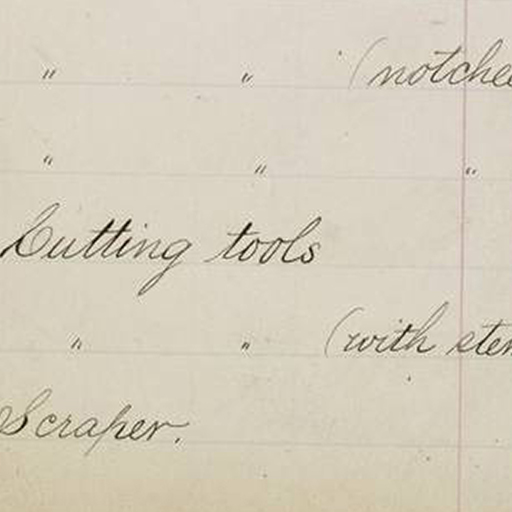 " " (notche
" " "
Cutting tools
" " (with ste
Scraper.